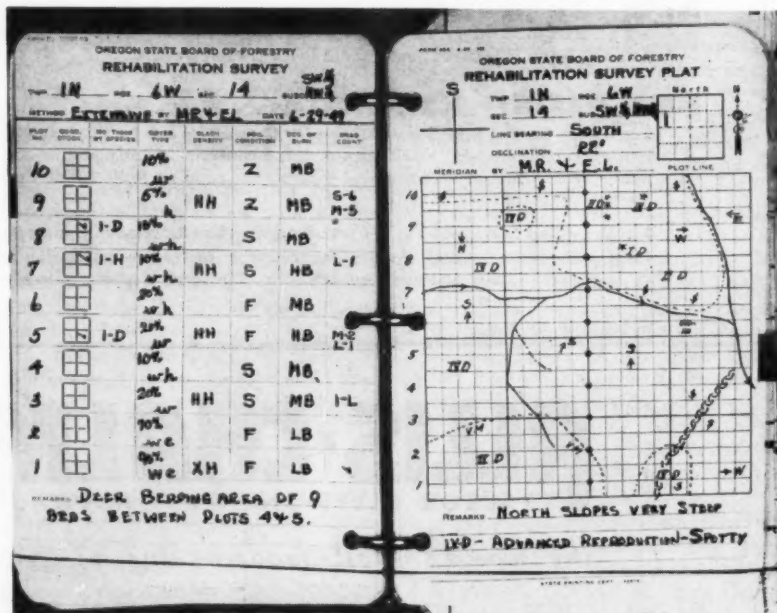 OREGON STATE BOARD OF FORESTRY
REHABILITATION SURVEY
TWP. 1N RGE 6W SEC. 14 SUBD SW¼
METHOD EXTENSIVE BY MR & EL DATE 6-29-49
PLOT NO. QUAD. STOCK. NO. TREES BY SPECIES COVER TYPE SLASH DENSITY SOIL CONDITION DEG. OF BURN DRAG COUNT
10 10% w Z MB
9 5% h HH Z MB S-6 M-5
8 1-D 10% wh S MB
7 1-H 10% wh HH S HB L-1
6 20% wh F MB
5 1-D 20% w HH F HB M-2 L-1
4 10% wh S MB
3 20% w HH S MB 1-L
2 70% we F LB
1 90% We XH F LB
REMARKS DEER BEDDING AREA OF 9
BEDS BETWEEN PLOTS 4&5.
OREGON STATE BOARD OF FORESTRY
REHABILITATION SURVEY PLAT
S
TWP. 1N RGE 6W
SEC. 14 SUBD SW¼
LINE BEARING SOUTH
DECLINATION 22°
MERIDIAN BY M.R. & E.L. PLOT LINE
North
N
10
9
8
7
6
5
4
3
2
1
IX D
W
S
N
REMARKS NORTH SLOPES VERY STEEP
IX-D - ADVANCED REPRODUCTION-SPOTTY
STATE PRINTING DEPT.